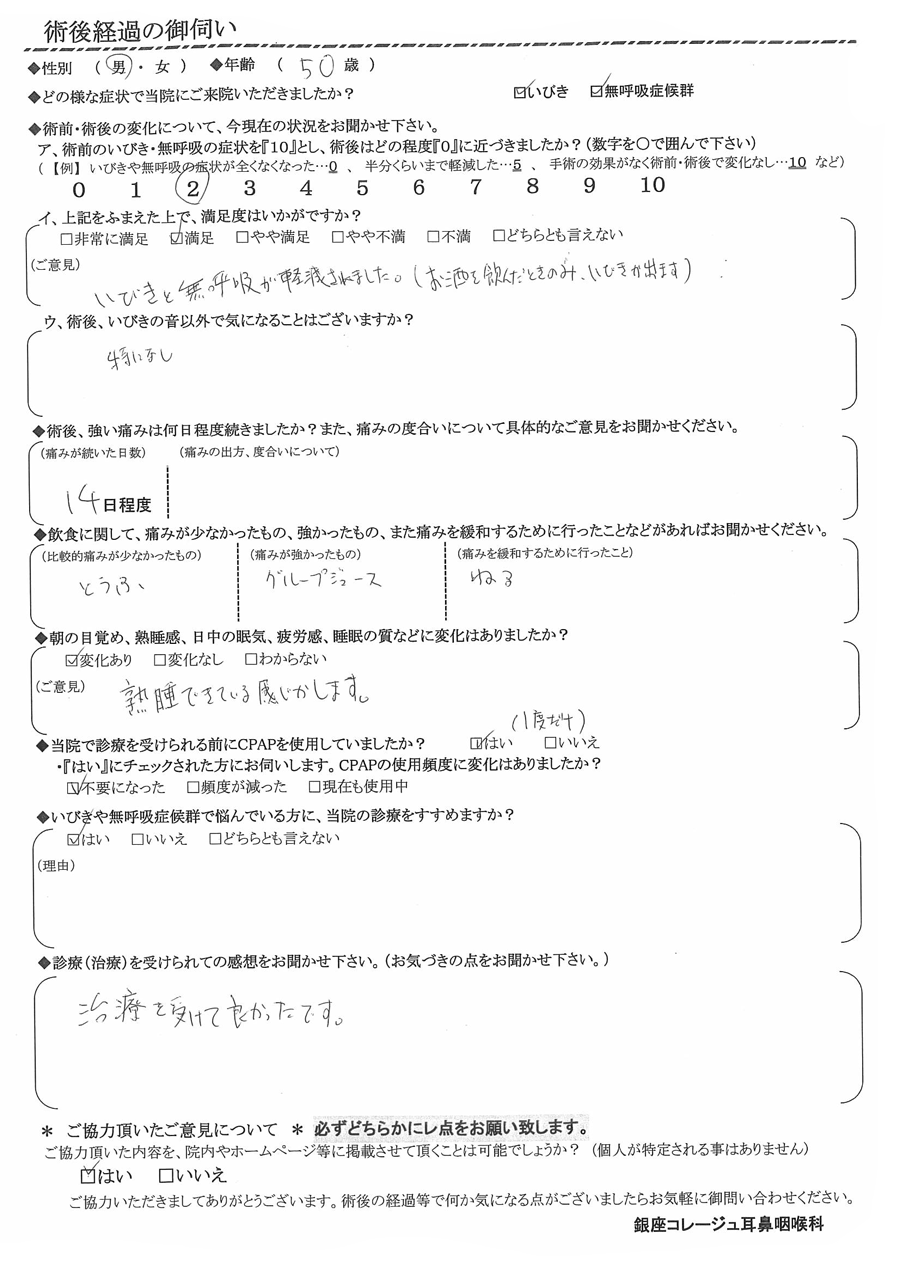 術後経過の御伺い
◆性別 (男・女) ◆年齢 (50歳)
◆どの様な症状で当院にご来院いただきましたか? ☑いびき ☑無呼吸症候群
◆術前・術後の変化について、今現在の状況をお聞かせ下さい。
ア、術前のいびき・無呼吸の症状を『10』とし、術後はどの程度『0』に近づきましたか?(数字を〇で囲んで下さい)
(【例】いびきや無呼吸の症状が全くなくなった…0 、 半分くらいまで軽減した…5 、 手術の効果がなく術前・術後で変化なし…10 など)
0 1 2 3 4 5 6 7 8 9 10
イ、上記をふまえた上で、満足度はいかがですか?
□非常に満足 ☑満足 □やや満足 □やや不満 □不満 □どちらとも言えない
(ご意見)
いびきと無呼吸が軽減されました。(お酒を飲んだときのみ、いびきが出ます)
ウ、術後、いびきの音以外で気になることはございますか?
特になし
◆術後、強い痛みは何日程度続きましたか?また、痛みの度合いについて具体的なご意見をお聞かせください。
(痛みが続いた日数) (痛みの出方、度合いについて)
14日程度
◆飲食に関して、痛みが少なかったもの、強かったもの、また痛みを緩和するために行ったことなどがあればお聞かせください。
(比較的痛みが少なかったもの) (痛みが強かったもの) (痛みを緩和するために行ったこと)
とうふ、 グループジュース ねる
◆朝の目覚め、熟睡感、日中の眠気、疲労感、睡眠の質などに変化はありましたか?
☑変化あり □変化なし □わからない
(ご意見)
熟睡できている感じがします。
(1度だけ)
◆当院で診療を受けられる前にCPAPを使用していましたか? ☑はい □いいえ
・『はい』にチェックされた方にお伺いします。CPAPの使用頻度に変化はありましたか?
☑不要になった □頻度が減った □現在も使用中
◆いびきや無呼吸症候群で悩んでいる方に、当院の診療をすすめますか?
☑はい □いいえ □どちらとも言えない
(理由)
◆診療(治療)を受けられての感想をお聞かせ下さい。(お気づきの点をお聞かせ下さい。)
治療を受けて良かったです。
＊ ご協力頂いたご意見について ＊ 必ずどちらかにレ点をお願い致します。
ご協力頂いた内容を、院内やホームページ等に掲載させて頂くことは可能でしょうか? (個人が特定される事はありません)
☑はい □いいえ
ご協力いただきましてありがとうございます。術後の経過等で何か気になる点がございましたらお気軽に御問い合わせください。
銀座コレージュ耳鼻咽喉科